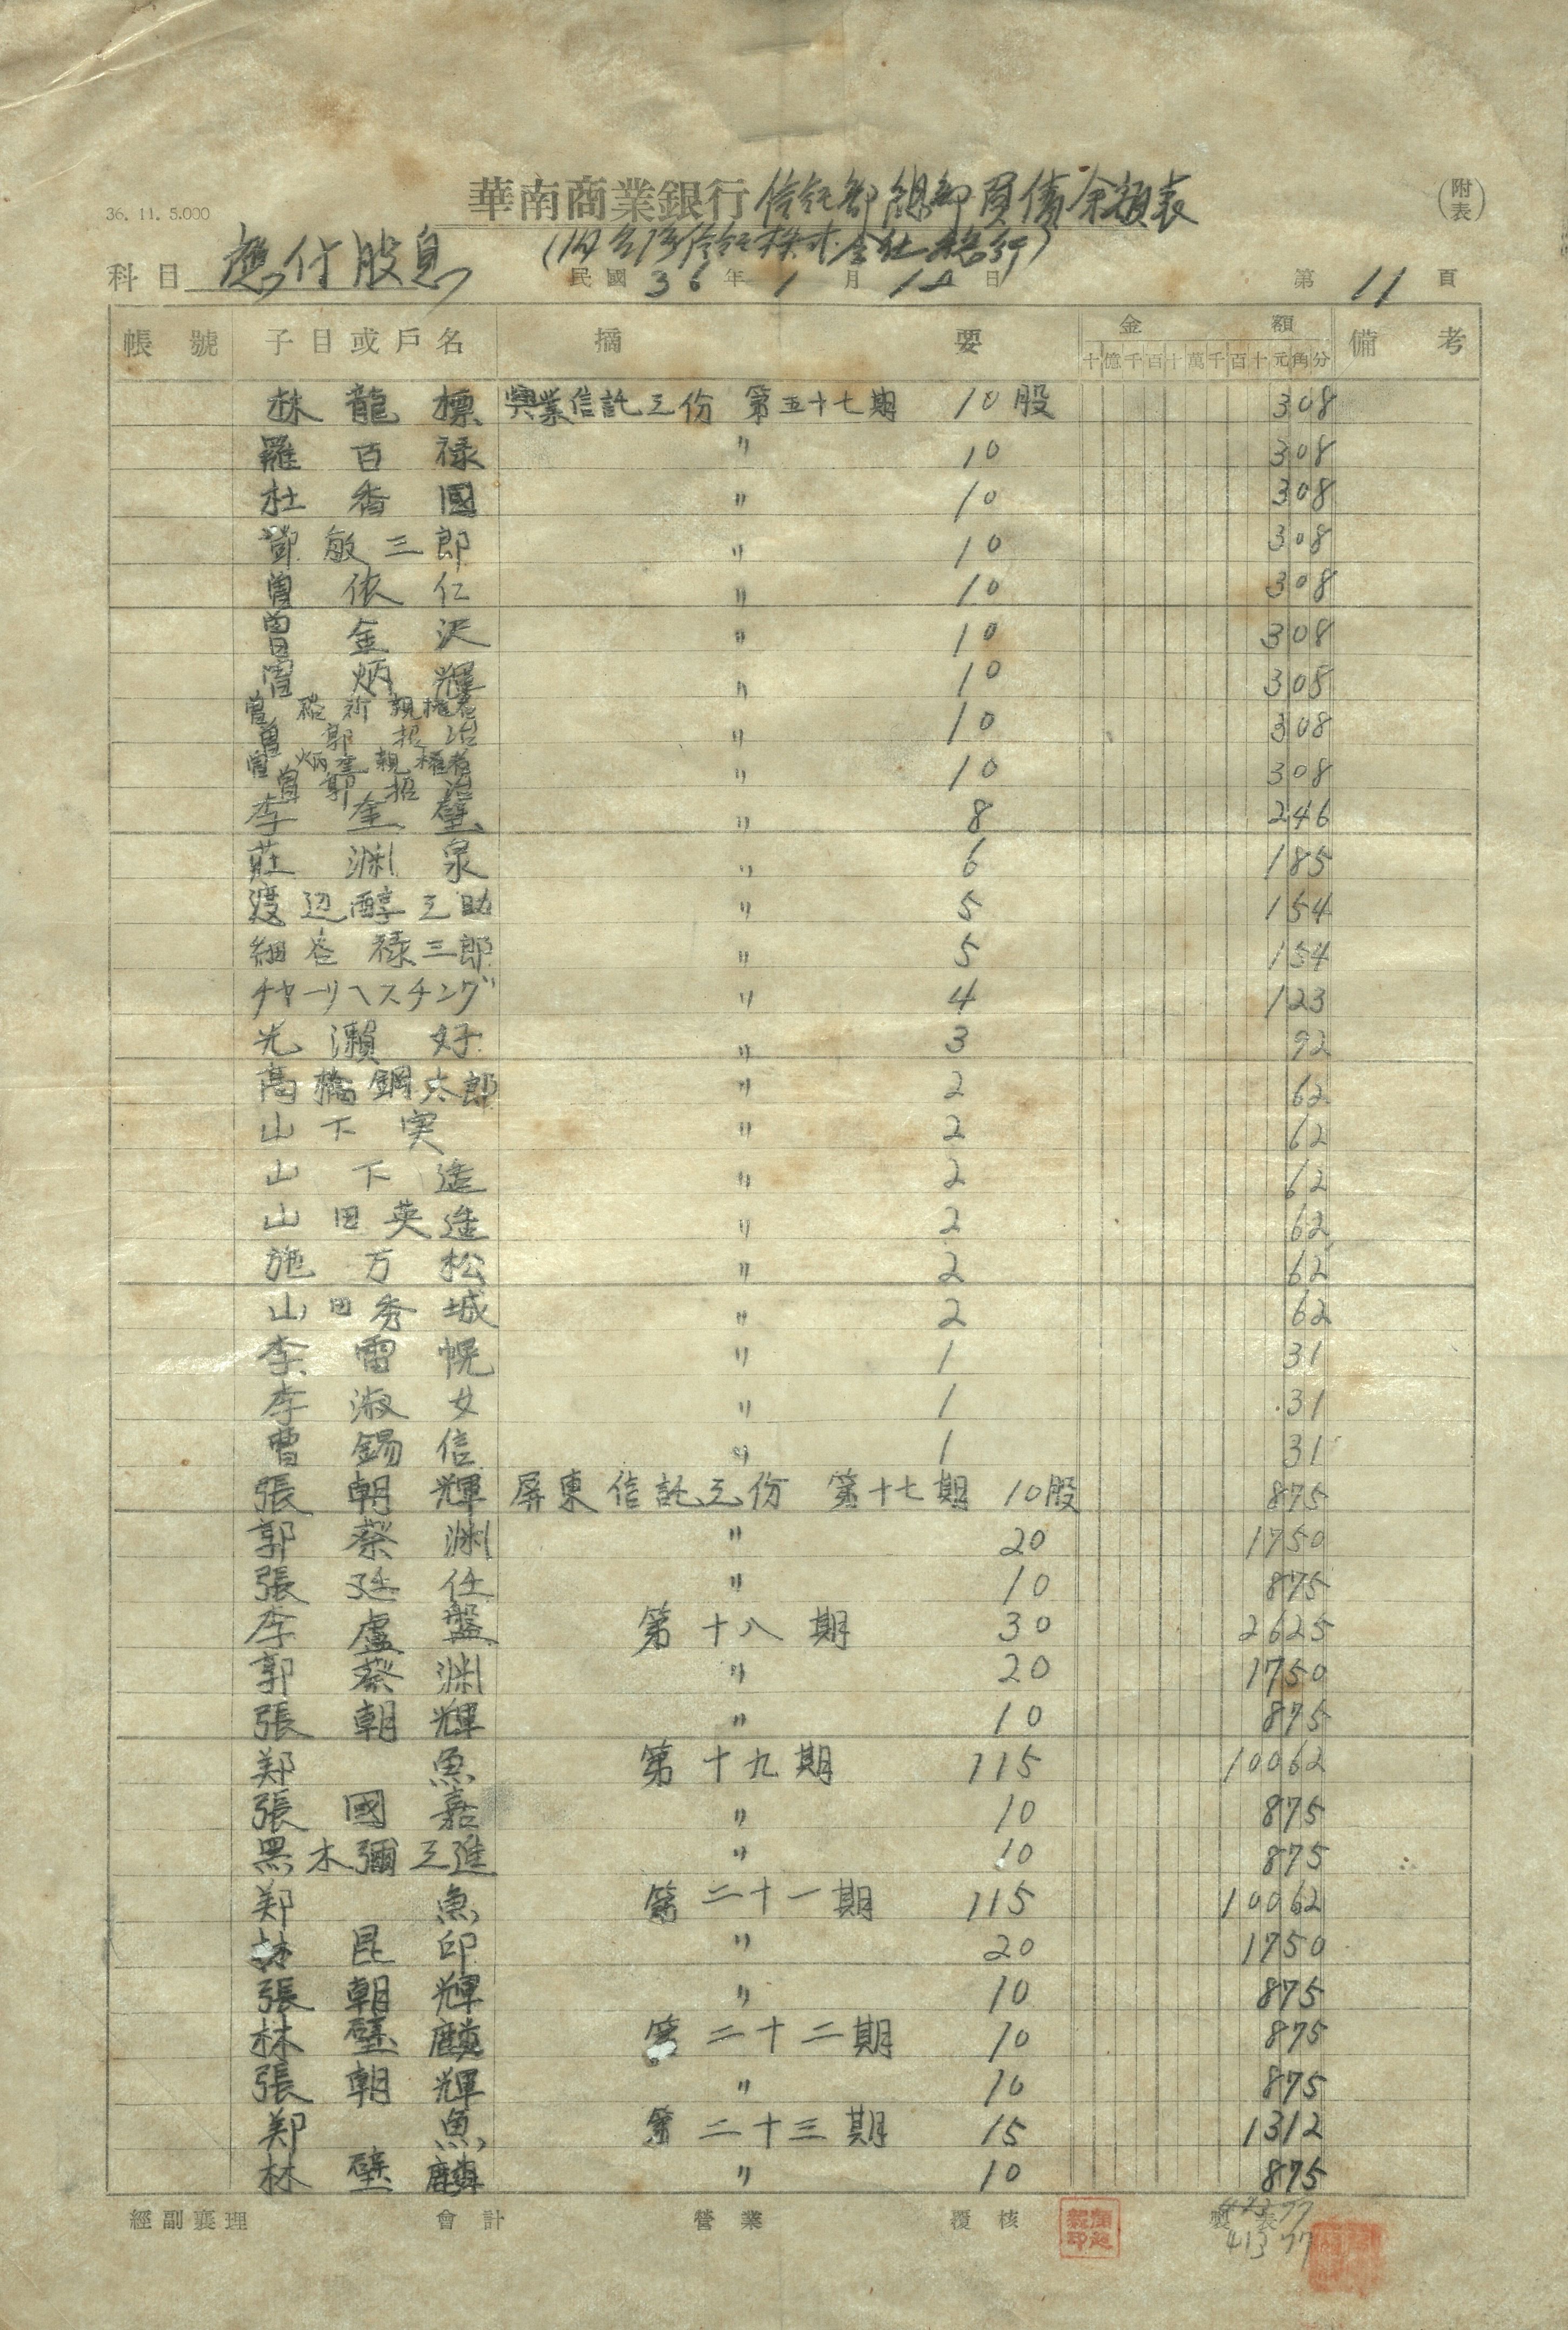 36. 11. 5.000
華南商業銀行信託部總部負債余額表
(附表)
科目 應付股息
民國 36 年 1 月 12 日 第 11 頁
帳號 子目或戶名 摘要 金額 備考
十億千百十萬千百十元角分
林龍標 興業信託之份 第五十七期 10股 308
羅百禄 〃 10 308
杜香國 〃 10 308
鄧敏三郎 〃 10 308
曽依仁 〃 10 308
曽金沢 〃 10 308
曽炳輝 〃 10 305
曽 親権者
曽郭招治 〃 10 308
曽炳奎親権者
曽郭招治 〃 10 308
李奎壁 〃 8 246
莊渊泉 〃 6 185
渡辺醇之助 〃 5 154
細谷禄三郎 〃 5 154
チヤーリヘスチング 〃 4 123
光瀬好 〃 3 92
高橋鋼太郎 〃 2 62
山下実 〃 2 62
山下進 〃 2 62
山田英進 〃 2 62
施万松 〃 2 62
山田秀城 〃 2 62
李雷幌 〃 1 31
李淑女 〃 1 31
曹錫信 〃 1 31
張朝輝 屏東信託之份 第十七期 10股 875
郭蔡渊 〃 20 1750
張廷仕 〃 10 875
李盧盤 第十八期 30 2625
郭蔡渊 〃 20 1750
張朝輝 〃 10 875
郑魚 第十九期 115 10062
張國嘉 〃 10 875
黒木彌之進 〃 10 875
郑魚 第二十一期 115 10062
林昆印 〃 20 1750
張朝輝 〃 10 875
林壁麟 第二十二期 10 875
張朝輝 〃 10 875
郑魚 第二十三期 15 1312
林壁麟 〃 10 875
經副襄理 會計 營業 覆核 製表
413 77